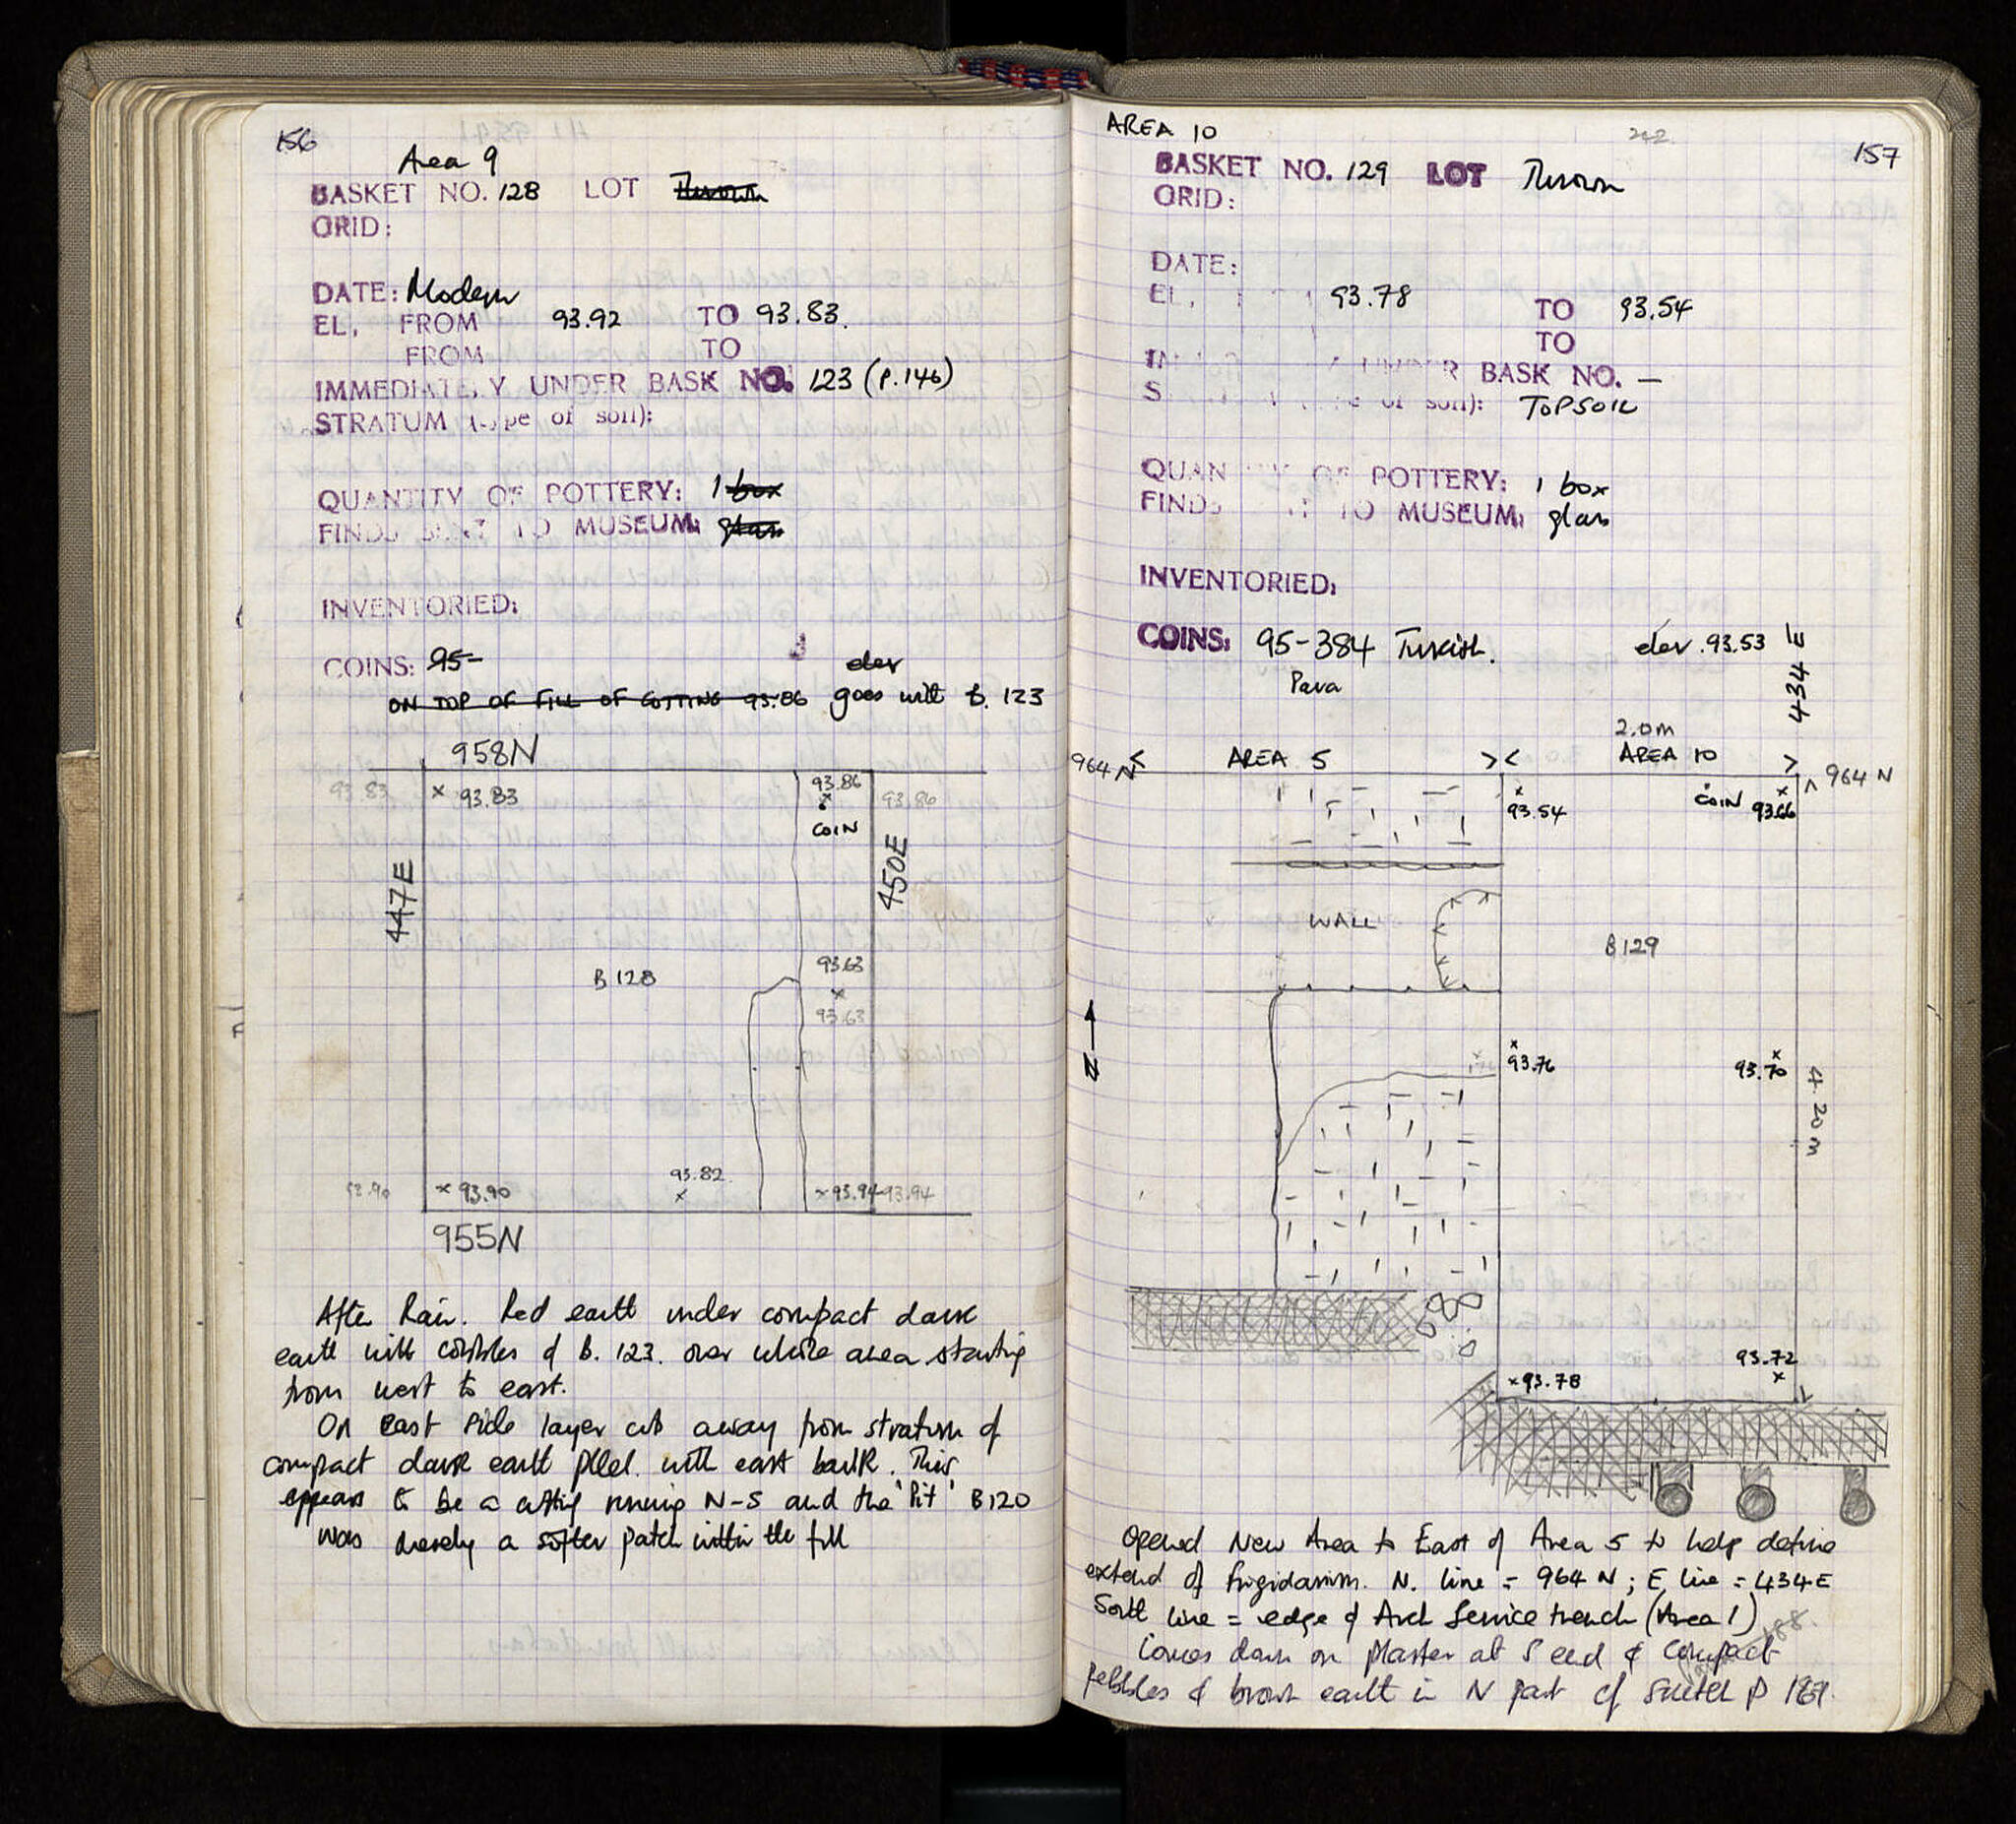 156
Area 9
BASKET NO. 128 LOT Thrown
GRID:
DATE: Modern
EL, FROM 93.92 TO 93.83.
FROM TO
IMMEDIATELY UNDER BASK NO. 123 (P.146)
STRATUM (type of soil):
QUANTITY OF POTTERY: 1 box
FINDS SENT TO MUSEUM: glass
INVENTORIED:
COINS: 95- elev
ON TOP OF FILL OF CUTTING 93.86 goes with B. 123
958N
93.83 × 93.83
93.86
×
COIN
93.86
447E
450E
B 128
93.63
×
93.63
93.90 × 93.90
93.82
×
× 93.94 93.94
955N
After Rain. Red earth under compact dark
earth with cobbles of B. 123. over whole area starting
from west to east.
On east side layer cut away from stratum of
compact dark earth pllel. with east baulk. This
appears to be a cutting running N-S and the 'Pit' B120
was merely a softer patch within the fill
AREA 10
157
BASKET NO. 129 LOT Thrown
GRID:
DATE:
EL, 93.78 TO 93.54
TO
R BASK NO. —
soil): TOPSOIL
QUAN OF POTTERY: 1 box
FINDS TO MUSEUM: glass
INVENTORIED:
COINS: 95-384 Turkish. elev. 93.53
Para
434 E
2.0m
964 N < AREA 5 > < AREA 10 > 964 N
×
93.54
COIN
×
93.66
WALL
B 129
N
×
93.76
×
93.70
4.20 m
93.72
×
× 93.78
Opened New Area to East of Area 5 to help define
extend of frigidarium. N. line = 964 N; E line = 434E
South line = edge of Arch Service trench (Area 1)
Comes down on plaster at S end & compact
pebbles & brown earth in N part cf sketch p